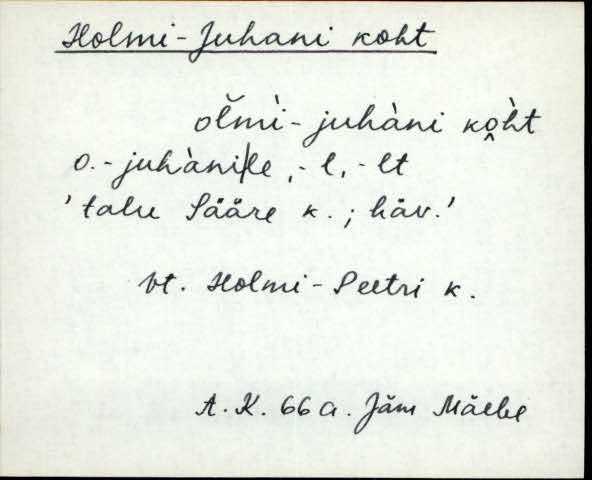 Holmi-Juhani koht
olmì-juhàni kòht
o.-juhàni|le, -l, -lt
'talu Sääre k.; häv.'
vt. Holmi-Peetri k.
A.K. 66 a. Jäm Mäebe